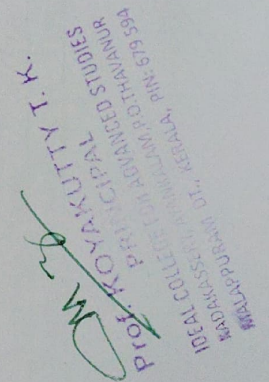 Prof. KOYAKUTTY T. K.
PRINCIPAL
IDEAL COLLEGE FOR ADVANCED STUDIES
KADAKASSERY, P.O.THAVANUR
MALAPPURAM DT., KERALA, PIN: 679 594